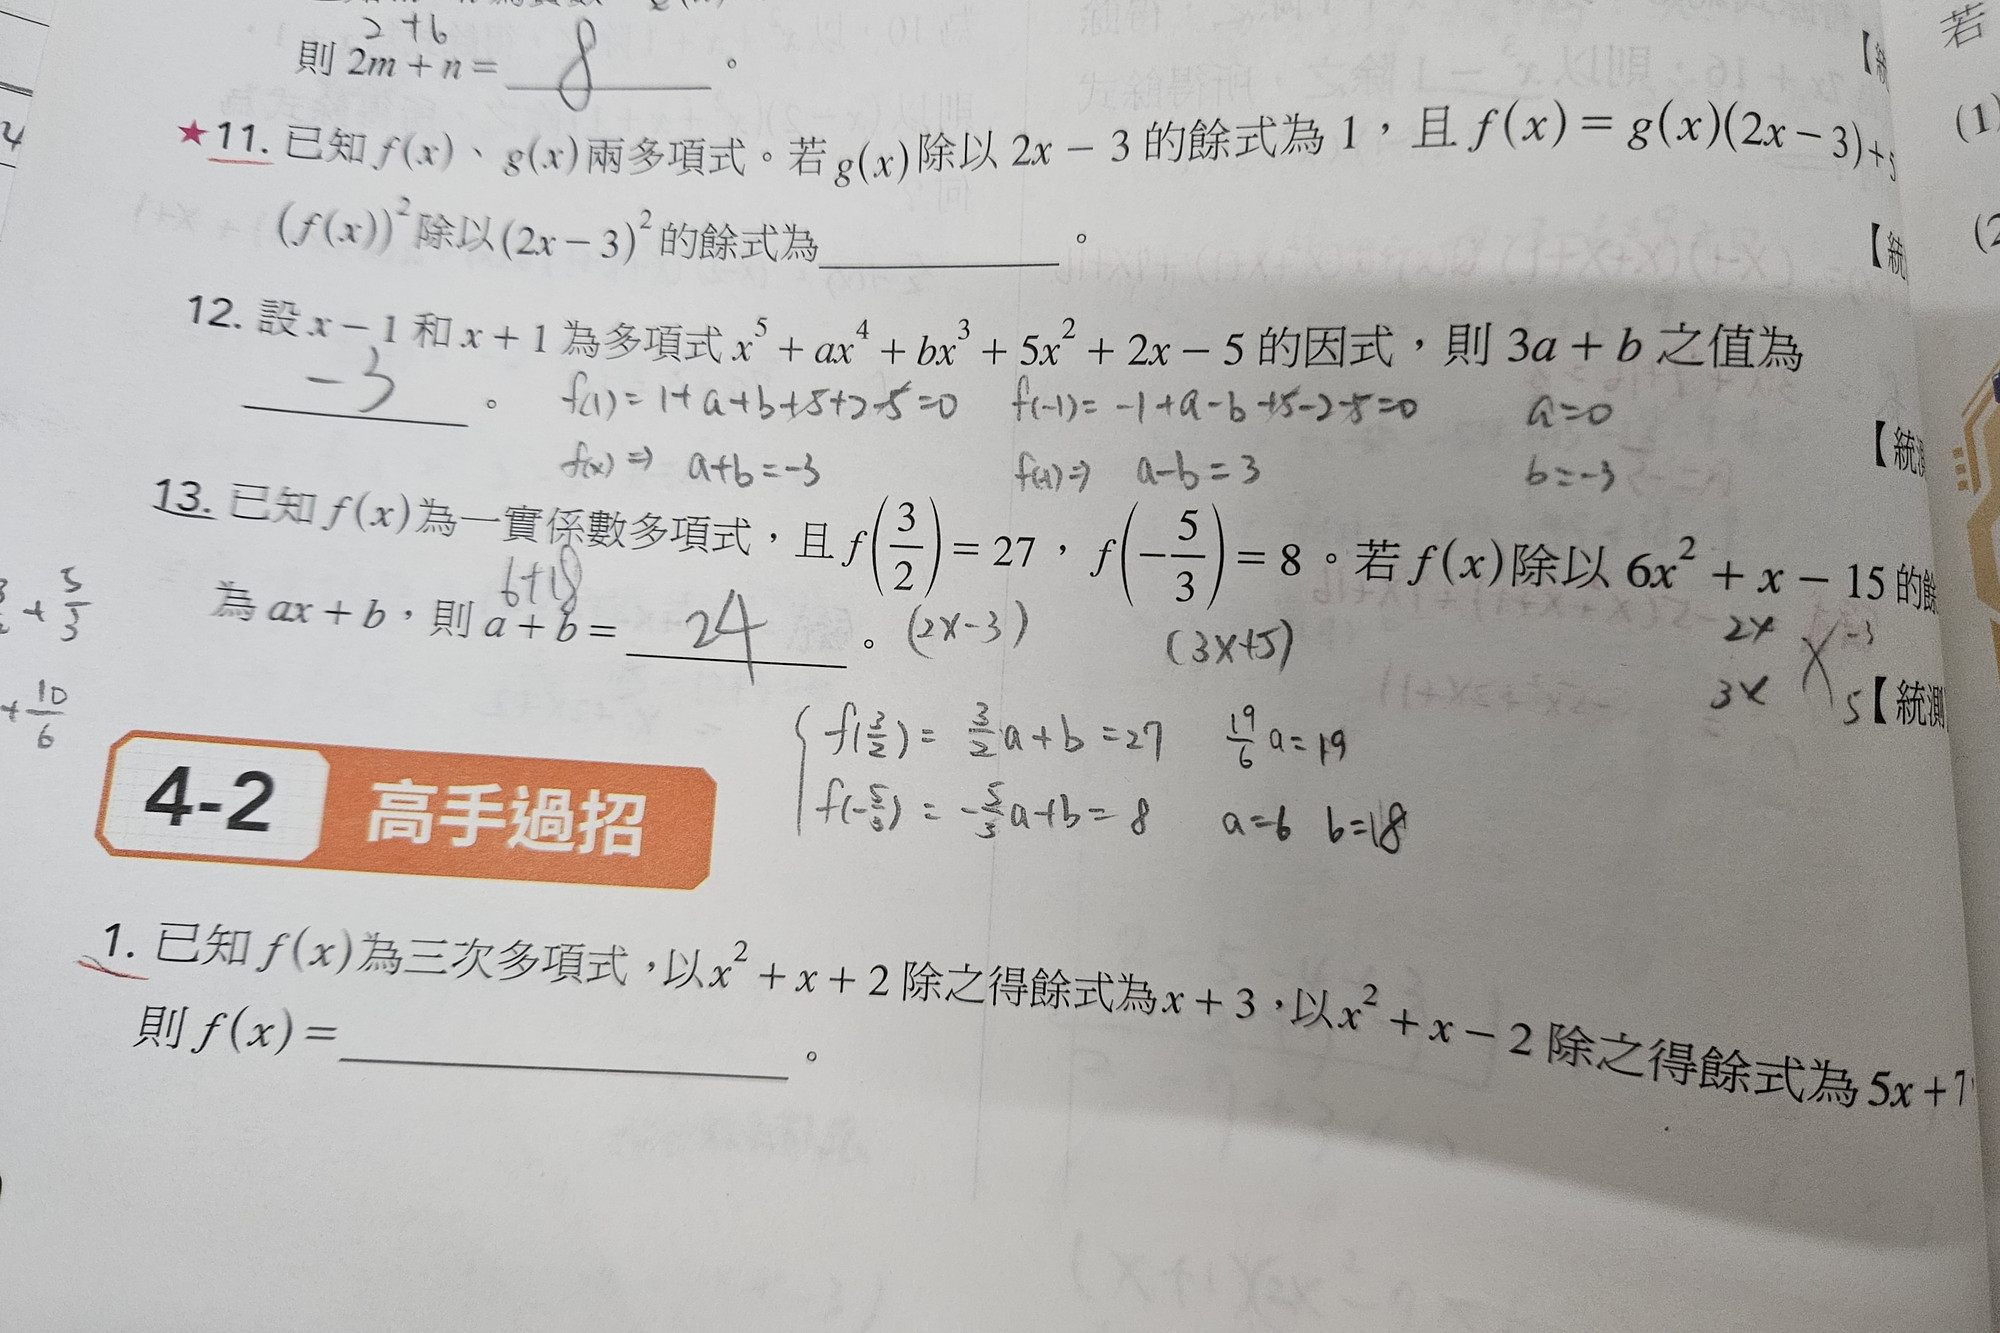 2+6
則 2m + n = 8 。
★11. 已知 f(x)、g(x) 兩多項式。若 g(x) 除以 2x − 3 的餘式為 1，且 f(x) = g(x)(2x − 3) +
(f(x))² 除以 (2x − 3)² 的餘式為______。
【統
12. 設 x − 1 和 x + 1 為多項式 x⁵ + ax⁴ + bx³ + 5x² + 2x − 5 的因式，則 3a + b 之值為
−3 。
f(1) = 1+a+b+5+2-5=0 f(-1) = -1+a-b+5-2-5=0 a=0
f(x) ⇒ a+b=-3 a-b=3 b=-3
【統測
13. 已知 f(x) 為一實係數多項式，且 f(3/2) = 27，f(−5/3) = 8。若 f(x) 除以 6x² + x − 15 的餘
6+18
為 ax + b，則 a + b = 24 。
(2x-3) (3x+5)
2x -3
3x 5
【統測
f(3/2) = 3/2a+b=27 19/6a=19
f(-5/3) = -5/3a+b=8 a=6 b=18
+ 5/3
+ 10/6
4-2 高手過招
1. 已知 f(x) 為三次多項式，以 x² + x + 2 除之得餘式為 x + 3，以 x² + x − 2 除之得餘式為 5x + 7
則 f(x) = ______。
若
(1)
(2